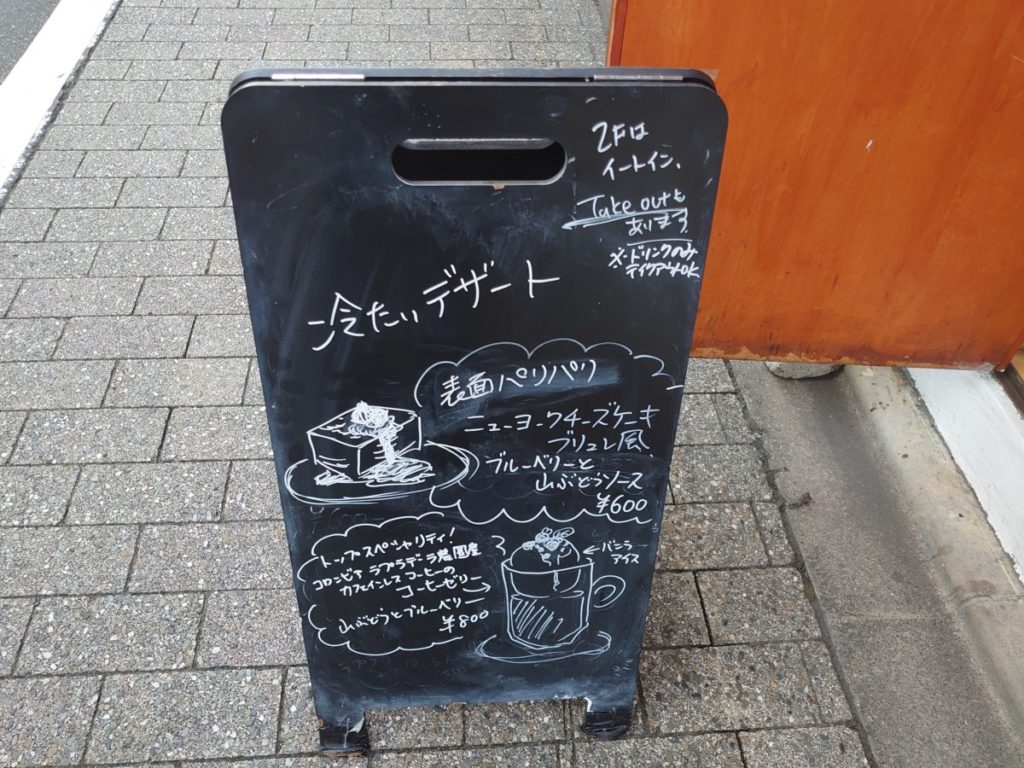 2Fは
イートイン、
Take outも
あります
※ドリンクのみ
テイクアウトOK
冷たいデザート
表面パリパリ
ニューヨークチーズケーキ
ブリュレ風
ブルーベリーと
山ぶどうソース
¥600
トップスペシャリティ!
コロンビア ラプラデーラ農園産
カフェインレスコーヒーの
コーヒーゼリー
山ぶどうとブルーベリー
¥800
←バニラ
アイス